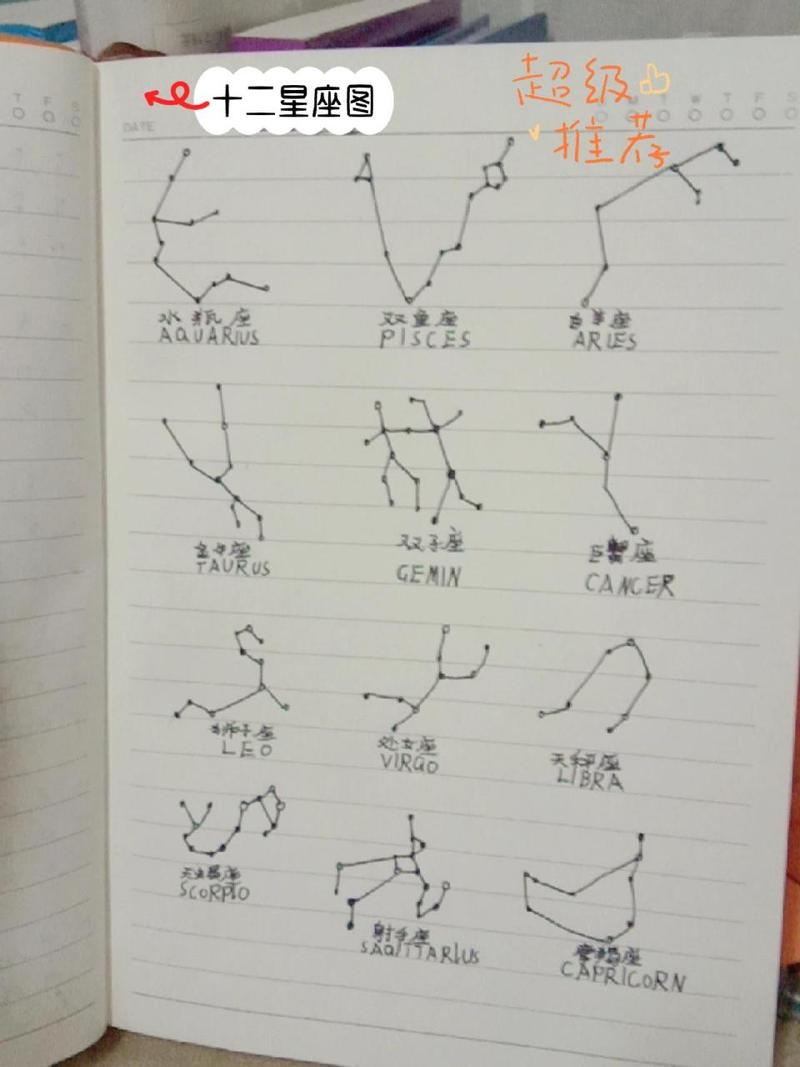 T F S
十二星座图
超级
M T W T F S
DATE
推荐
水瓶座
AQUARIUS
双鱼座
PISCES
白羊座
ARIES
金牛座
TAURUS
双子座
GEMIN
巨蟹座
CANCER
狮子座
LEO
处女座
VIRGO
天秤座
LIBRA
天蝎座
SCORPIO
射手座
SAGITTARIUS
摩羯座
CAPRICORN